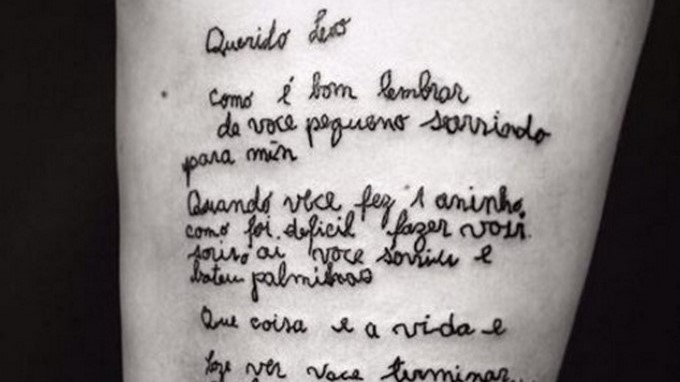 Querido Leo
como é bom lembrar
de voce pequeno sorrindo
para min
Quando voce fez 1 aninho
como foi deficil fazer voçe
soriso ai voce sorriu e
bateu palminhas
Que coisa e a vida e
ver voce terminar